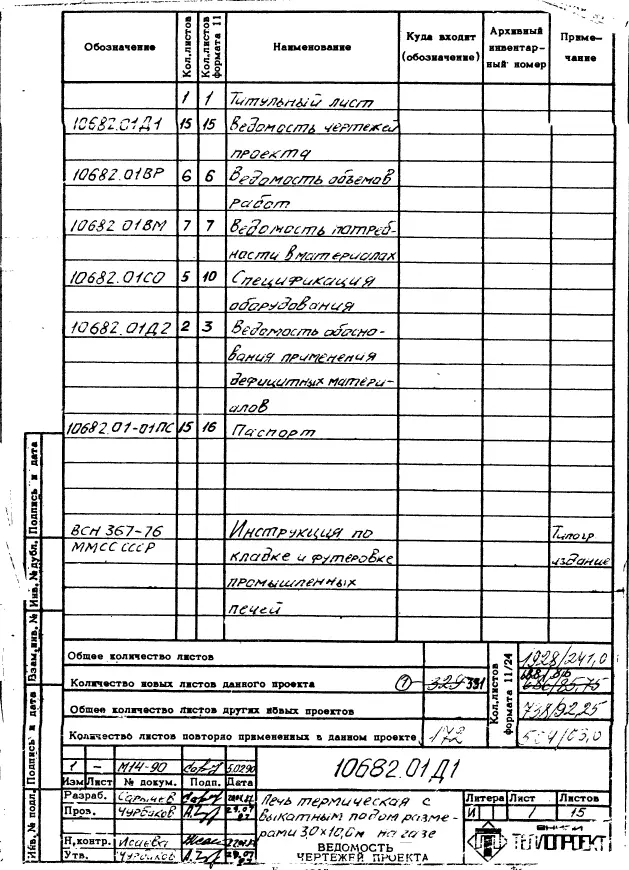 Обозначение Кол.листов Кол.листов формата 11 Наименование Куда входит (обозначение) Архивный инвентар- ный номер Приме- чание
1 1 Титульный лист
10682.01Д1 15 15 Ведомость чертежей
проекта
10682.01ВР 6 6 Ведомость объемов
работ
10682 01ВМ 7 7 Ведомость потреб-
ности в материалах
10682.01СО 5 10 Спецификация
оборудования
10682.01Д2 2 3 Ведомость обосно-
вания применения
дефицитных матери-
алов
10682.01-01ПС 15 16 Паспорт
ВСН 367-76 Инструкция по Типогр
ММСС СССР кладке и футеровке издание
промышленных
печей
Общее количество листов 1928/241,0
Количество новых листов данного проекта 1 329 331
686/85,75
Общее количество листов других новых проектов 738/92,25
Количество листов повторно примененных в данном проекте 172 504/63,0
Кол.листов формата 11/24
Подпись и дата
Инв.№ дубл.
Взам.инв.№
Подпись и дата
Инв.№ подл.
1 - М14-90 5.02.90
Изм Лист № докум. Подп. Дата
10682.01Д1
Разраб.
Пров. Чурбаков
Н.контр. Исаева
Утв. Чурбаков
Печь термическая с
выкатным подом разме-
рами 3,0х10,6м на газе
ВЕДОМОСТЬ
ЧЕРТЕЖЕЙ ПРОЕКТА
Литера Лист Листов
И 1 15
ВНИПИ
ТЕПЛОПРОЕКТ